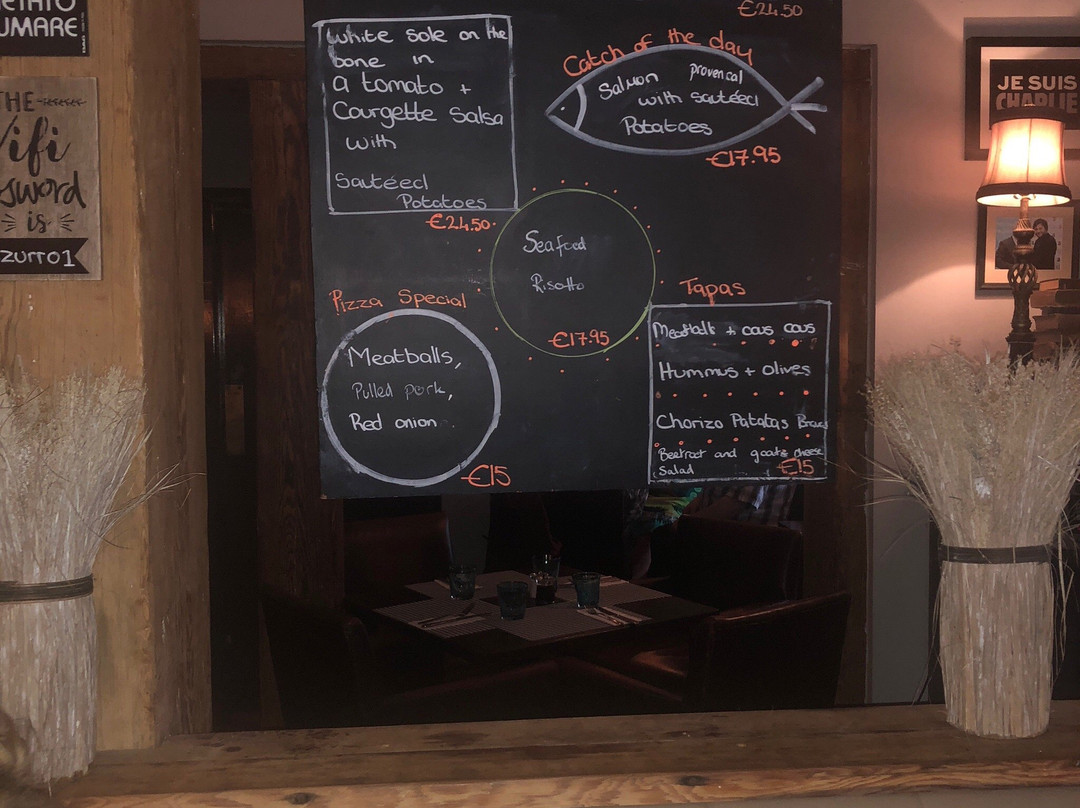 UMARE
THE
Wifi
is
zurro1
€24.50
White Sole on the
bone in
a tomato +
Courgette Salsa
with
Sautéed
Potatoes
€24.50
Catch of the day
Salmon provencal
with sautéed
Potatoes
€17.95
Seafood
Risotto
€17.95
Pizza Special
Meatballs,
Pulled pork,
Red onion
€15
Tapas
Meatballs + cous cous
Hummus + olives
Chorizo Patatas Bravas
Beetroot and goats cheese
Salad €15
JE SUIS
CHARLIE